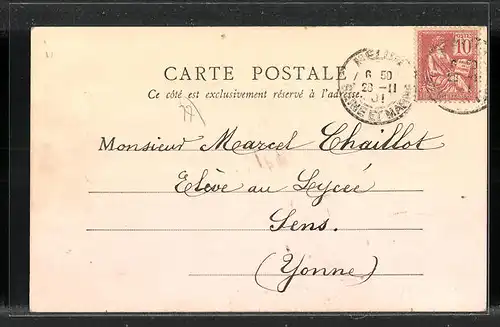 CARTE POSTALE
Ce côté est exclusivement réservé à l'adresse.
MELUN
6 50
20 -11
01
SEINE ET MARNE
10
Monsieur Marcel Chaillot
Elève au Lycée
Sens.
(Yonne)